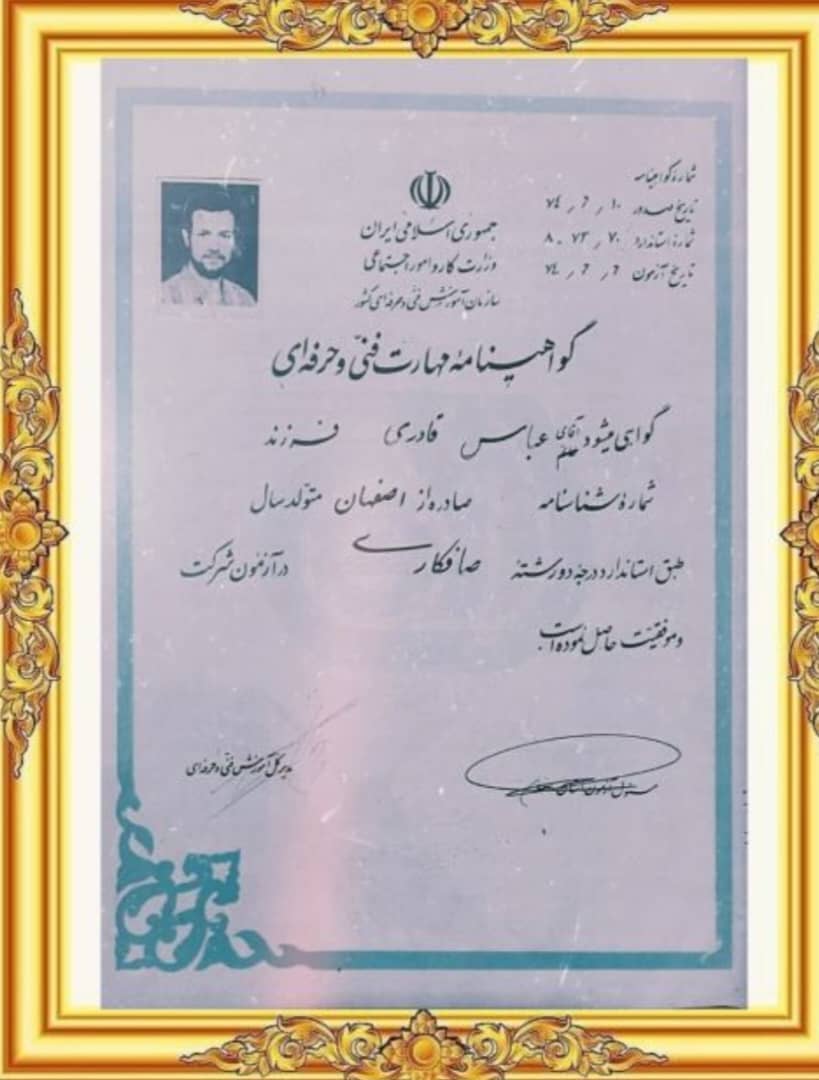 شماره گواهینامه
تاریخ صدور ۱۰ / ۶ / ۷۴
شماره استاندارد ۷۰ / ۷۳ - ۸
تاریخ آزمون ۶ / ۶ / ۷۴
جمهوری اسلامی ایران
وزارت کار و امور اجتماعی
سازمان آموزش فنی و حرفه‌ای کشور
گواهینامه مهارت فنی و حرفه‌ای
گواهی میشود آقای خانم عباس قادری فرزند
شماره شناسنامه صادره از اصفهان متولد سال
طبق استاندارد درجه دو رشته صافکاری در آزمون شرکت
و موفقیت حاصل نموده است.
مسئول آزمون استان
مدیر کل آموزش فنی و حرفه‌ای